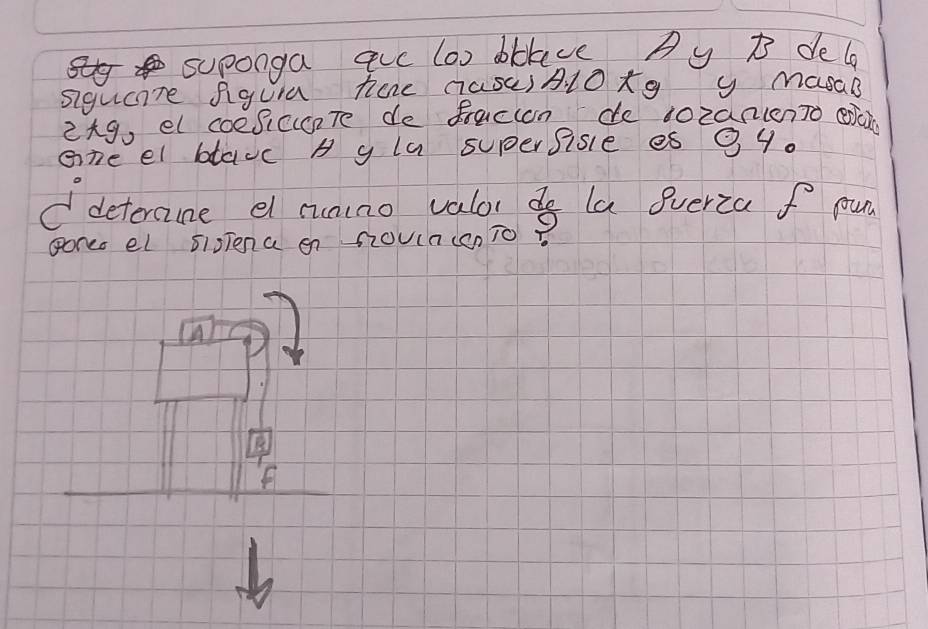 suponga que los bloave A y B de la
siguciте figura tiene masas A10 kg y masaB
2kg, el coeficiente de fraccion de rozamiento estatico
entre el bloave A y la superfisie es 0,4.
¿ determine el maimo valor de la fuerza f para
poner el sistema en movimiento ?
A
B
F